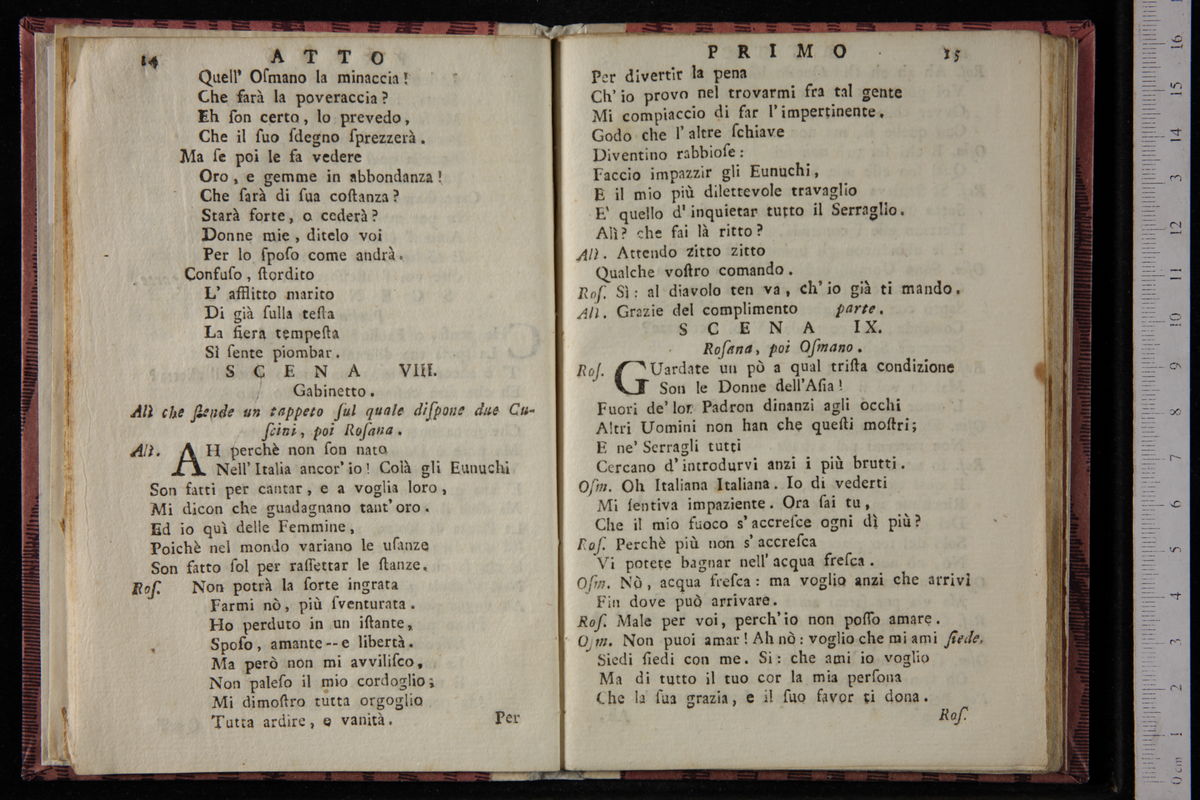 14 ATTO
Quell' Oſmano la minaccia!
Che farà la poveraccia?
Eh ſon certo, lo prevedo,
Che il ſuo ſdegno ſprezzerà.
Ma ſe poi le fa vedere
Oro, e gemme in abbondanza!
Che ſarà di ſua coſtanza?
Starà forte, o cederà?
Donne mie, ditelo voi
Per lo ſpoſo come andrà.
Confuſo, ſtordito
L' afflitto marito
Di già ſulla teſta
La fiera tempeſta
Sì ſente piombar.
SCENA VIII.
Gabinetto.
Alì che ſtende un tappeto ſul quale diſpone due Cu-
ſcini, poi Roſana.
Alì. AH perchè non ſon nato
Nell' Italia ancor' io! Colà gli Eunuchi
Son fatti per cantar, e a voglia loro,
Mi dicon che guadagnano tant' oro.
Ed io quì delle Femmine,
Poichè nel mondo variano le uſanze
Son fatto ſol per raſſettar le ſtanze.
Roſ. Non potrà la ſorte ingrata
Farmi nò, più ſventurata.
Ho perduto in un iſtante,
Spoſo, amante -- e libertà.
Ma però non mi avviliſco,
Non paleſo il mio cordoglio;
Mi dimoſtro tutta orgoglio
Tutta ardire, e vanità.
Per
PRIMO 15
Per divertir la pena
Ch' io provo nel trovarmi fra tal gente
Mi compiaccio di far l' impertinente.
Godo che l' altre ſchiave
Diventino rabbioſe:
Faccio impazzir gli Eunuchi,
E il mio più dilettevole travaglio
E' quello d' inquietar tutto il Serraglio.
Alì? che fai là ritto?
Alì. Attendo zitto zitto
Qualche voſtro comando.
Roſ. Sì: al diavolo ten va, ch' io già ti mando.
Alì. Grazie del complimento parte.
SCENA IX.
Roſana, poi Oſmano.
Roſ. GUardate un pò a qual triſta condizione
Son le Donne dell' Aſia!
Fuori de' lor Padron dinanzi agli occhi
Altri Uomini non han che queſti moſtri;
E ne' Serragli tutti
Cercano d' introdurvi anzi i più brutti.
Oſm. Oh Italiana Italiana. Io di vederti
Mi ſentiva impaziente. Ora ſai tu,
Che il mio fuoco s' accreſce ogni dì più?
Roſ. Perchè più non s' accreſca
Vi potete bagnar nell' acqua freſca.
Oſm. Nò, acqua freſca: ma voglio anzi che arrivi
Fin dove può arrivare.
Roſ. Male per voi, perch' io non poſſo amare.
Oſm. Non puoi amar! Ah nò: voglio che mi ami ſiede.
Siedi ſiedi con me. Si: che ami io voglio
Ma di tutto il tuo cor la mia perſona
Che la ſua grazia, e il ſuo favor ti dona.
Roſ.